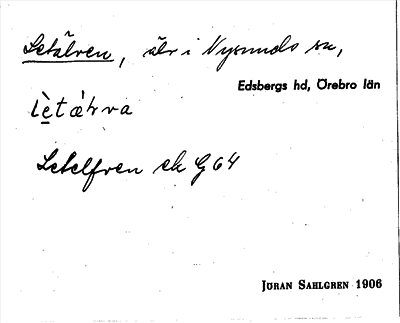 Letälven, älv i Nysunds sn,
Edsbergs hd, Örebro län
Letelfven ek G 64
JÖRAN SAHLGREN 1906